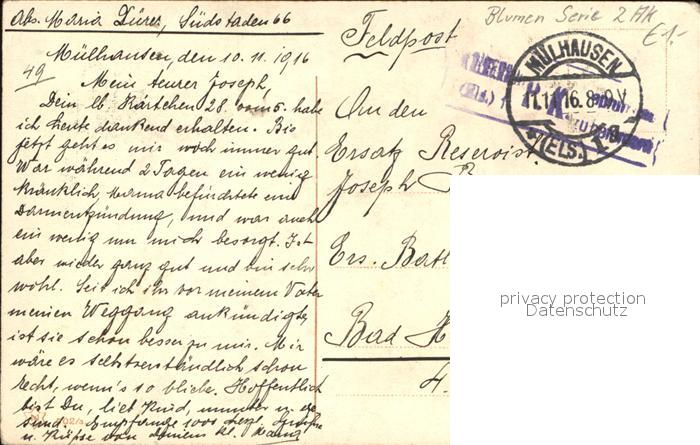 Abs. Maria Dürer, Südstaden 66
Mülhausen, den 10. 11. 1916
49
Mein teurer Joseph,
Dein lb. Kärtchen 28. vom 5. habe
ich heute dankend erhalten. Bis
jetzt geht es mir noch immer gut.
War während 2 Tagen ein wenig
kränklich, Mama befürchtete eine
Darmentzündung, und war auch
ein wenig um mich besorgt. Ist
aber wieder ganz gut und bin sehr
wohl. Seit ich ihr von meinem Vater
meinen Weggang ankündigte,
ist sie schon besser zu mir. Mir
wäre es selbstverständlich schon
recht, wenn's so bliebe. Hoffentlich
bist Du, lieb Kind, munter u. ge
sund. Empfange 1000 herzl. Grüße
u. Küsse von Deinem kl.
Blumen Serie 2 AK
€1-
Feldpost
MÜLHAUSEN
11.11.16. 8-9 V
(ELS.)
(Els.)
P.K.
An den
Ersatz Reservist
Joseph
Ers. Batl
Bad
4.
privacy protection
Datenschutz